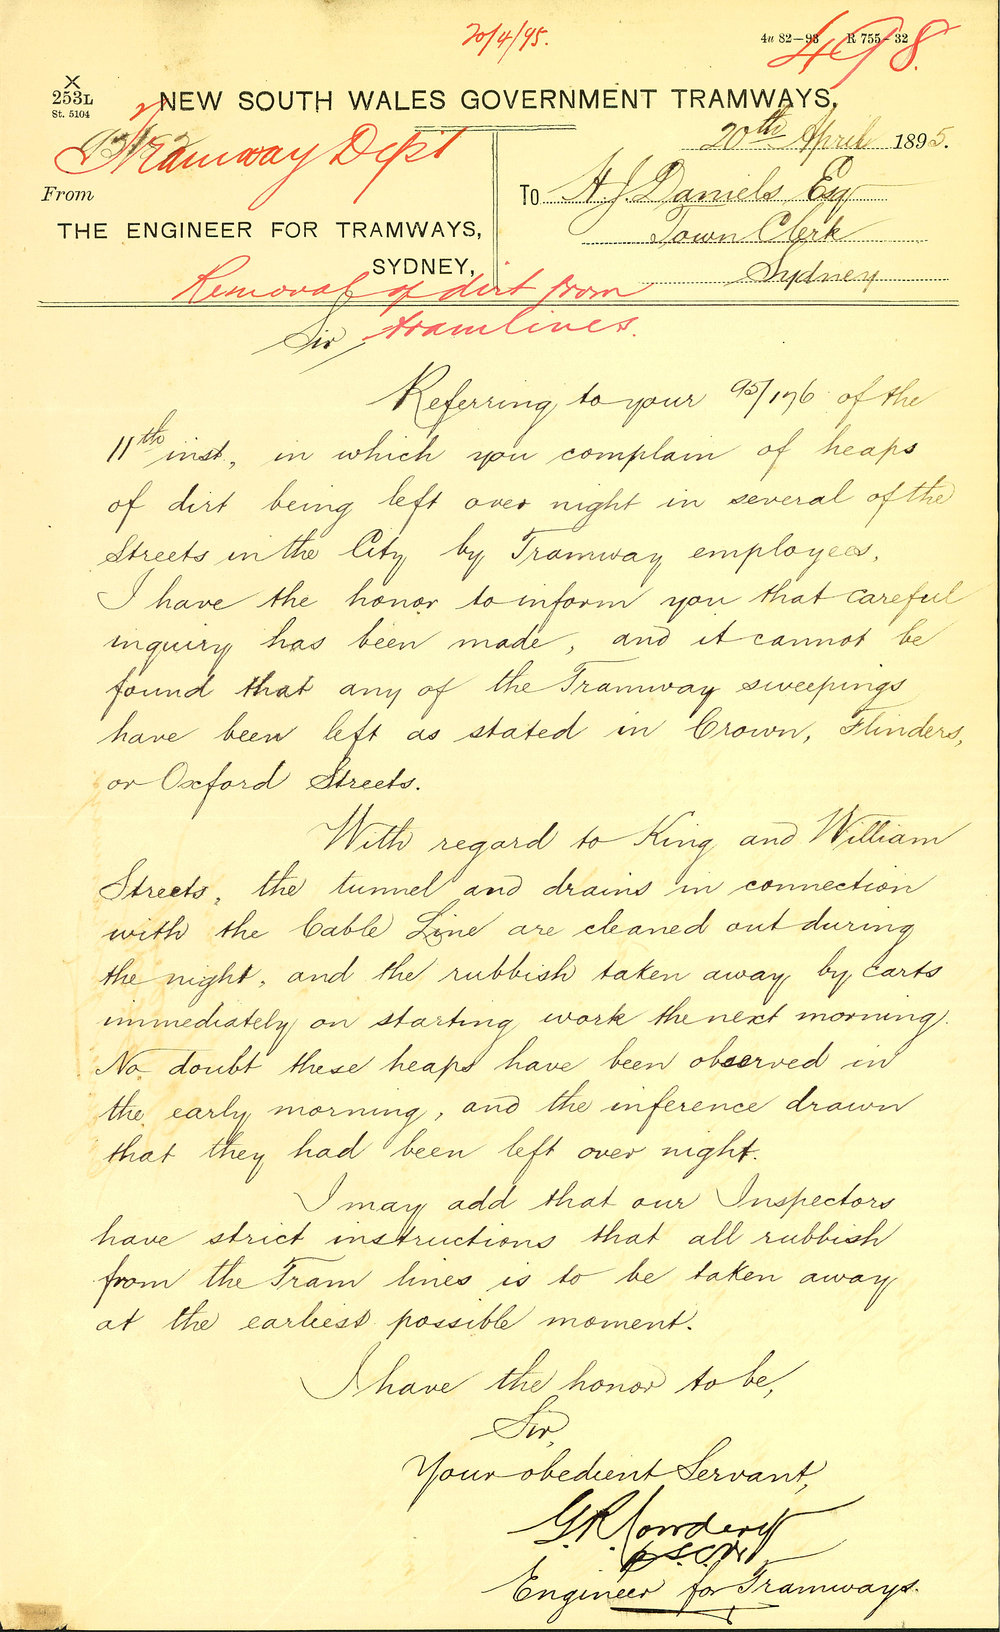 20/4/95.
4u 82–93 R 755–32
498.
X
253L
St. 5104
NEW SOUTH WALES GOVERNMENT TRAMWAYS,
20th April 1895.
Tramway Dept
From
To H. J. Daniels Esq
THE ENGINEER FOR TRAMWAYS,
Town Clerk
SYDNEY,
Sydney
Removal of dirt from
tramlines.
Sir,
Referring to your 95/176 of the
11th inst, in which you complain of heaps
of dirt being left over night in several of the
Streets in the City by Tramway employees,
I have the honor to inform you that careful
inquiry has been made, and it cannot be
found that any of the Tramway sweepings
have been left as stated in Crown, Flinders,
or Oxford Streets.
With regard to King and William
Streets, the tunnel and drains in connection
with the Cable Line are cleaned out during
the night, and the rubbish taken away by carts
immediately on starting work the next morning.
No doubt these heaps have been observed in
the early morning, and the inference drawn
that they had been left over night.
I may add that our Inspectors
have strict instructions that all rubbish
from the Tram lines is to be taken away
at the earliest possible moment.
I have the honor to be,
Sir,
Your obedient Servant,
G.R. Cowdery
Engineer for Tramways.